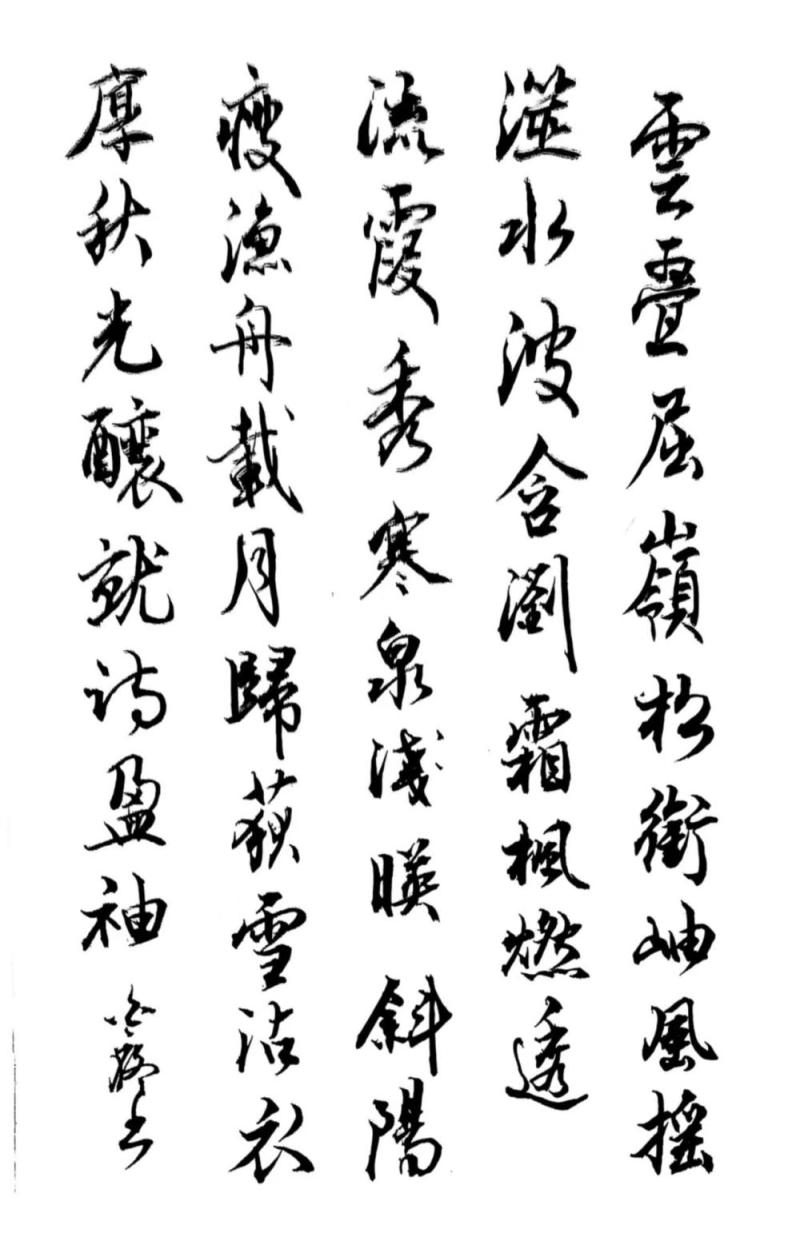 雲疊屈嶺松銜岫風搖
溼水波含瀏霜楓燃透
流霞秀寒泉淺映斜陽
瘦漁舟載月歸荻雪沾衣
厚秋光釀就詩盈袖
書